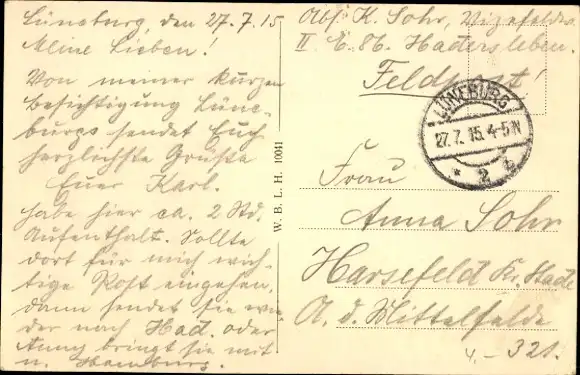 Lüneburg, den 27.7.15
Meine Lieben!
Von meiner kurzen
Besichtigung Lüne-
burgs sendet Euch
herzlichste Grüße
Euer Karl.
Habe hier ca. 2 Std.
Aufenthalt. Sollte
dort für mich wich-
tige Post eingehen,
dann sendet sie wie
der nach Had. oder
Anny bringt sie mit
n. Hamburg.
W. B. L. H. 10041
Abs. K. Sohr, Vizefeldw.
II E. 86. Hadersleben.
Feldpost!
LÜNEBURG
27.7.15.4-5N
* 2
Frau
Anna Sohr
Harsefeld Kr. Stade
A. d. Mittelfelde
321.